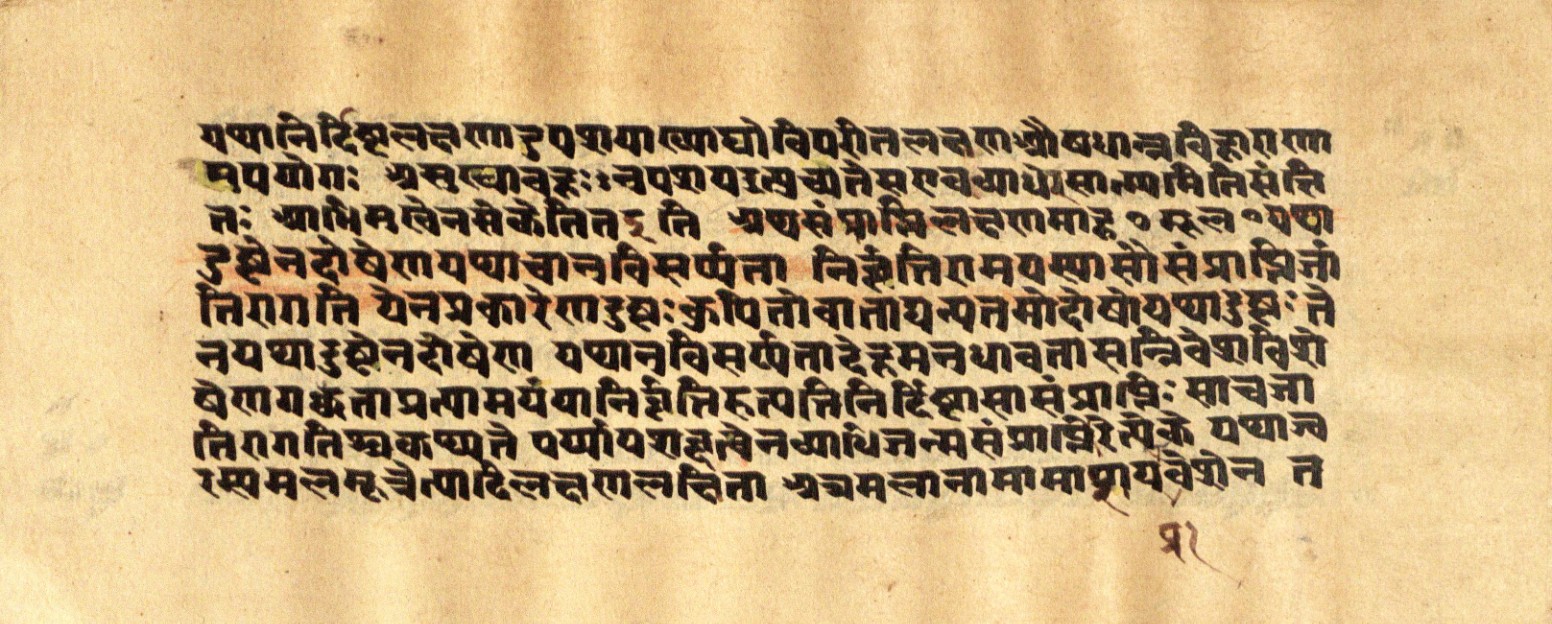 यथानिर्द्दिष्टलक्षणादुपशयाख्याघो विपरीतलक्षण औषधान्नविहाराणा
मुपयोगः असुखावहः नुपशयइत्युच्यते सएवव्याधेरसात्म्यमितिसंज्ञि
तः व्याधिमुखेनसंकेतितइति अथसंप्राप्तिलक्षणमाह ० मूल ० यथा
दुष्टेनदोषेणयथाचानुविसर्प्पता निर्वृत्तिरामयस्यासौ संप्राप्तिर्जा
तिरागति येनप्रकारेणदुष्टः कुपितोवाताद्यन्यतमोदोषोयथादुष्टः ते
नयथादुष्टेनदोषेण यथानुविसर्प्पतादेहमनुधावतासन्निवेशविशे
षेणगच्छताप्रत्यामयंयानिर्वृत्तिरुत्पत्तिर्निर्द्दिष्टासासंप्राप्तिः साचजा
तिरागतिश्चकथ्यते पर्य्यायशब्दत्वेनव्याधिजन्मसंप्राप्तिरित्येके यथाज्व
रस्यमलमूत्रेत्यादिलक्षणलक्षिता अत्रमलानामामाशयप्रवेशेन त
प्र१